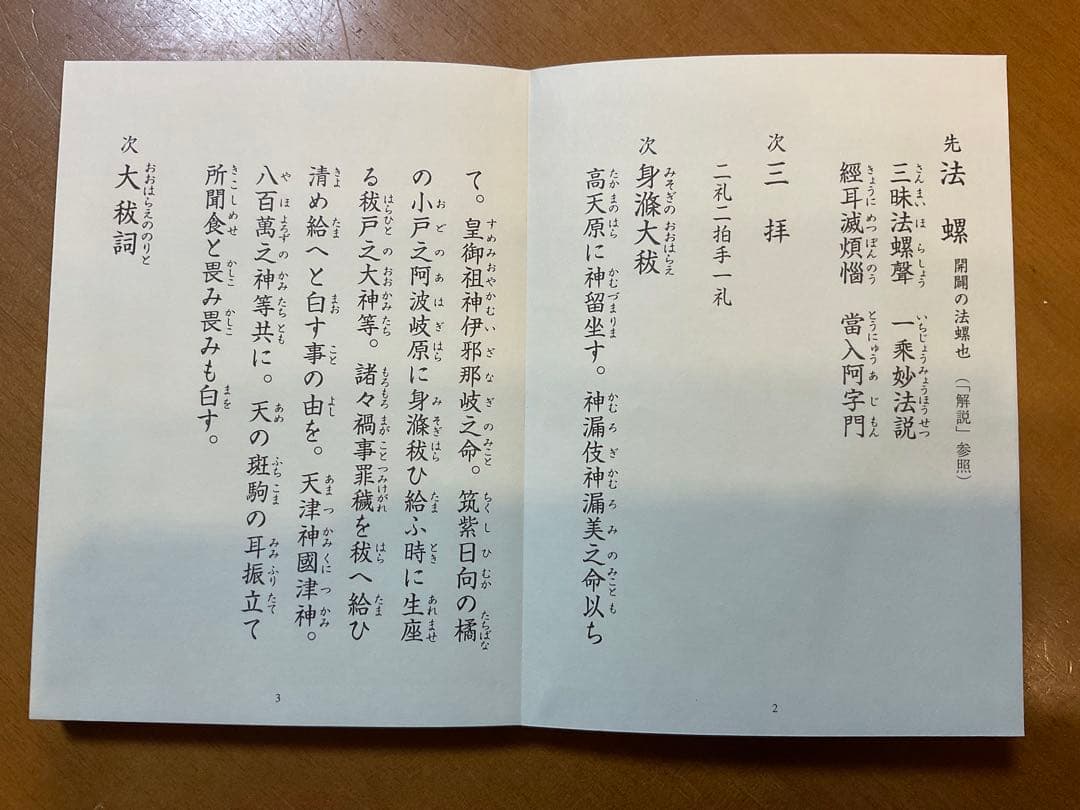 先 法螺 開闢の法螺也 (「解説」参照)
三昧法螺聲 一乗妙法説
經耳滅煩惱 當入阿字門
次 三拝
二礼二拍手一礼
次 身滌大秡
高天原に神留坐す。神漏伎神漏美之命以ち
2
て。皇御祖神伊邪那岐之命。筑紫日向の橘
の小戸之阿波岐原に身滌秡ひ給ふ時に生座
る秡戸之大神等。諸々禍事罪穢を秡へ給ひ
清め給へと白す事の由を。天津神國津神。
八百萬之神等共に。天の斑駒の耳振立て
所聞食と畏み畏みも白す。
次 大秡詞
3